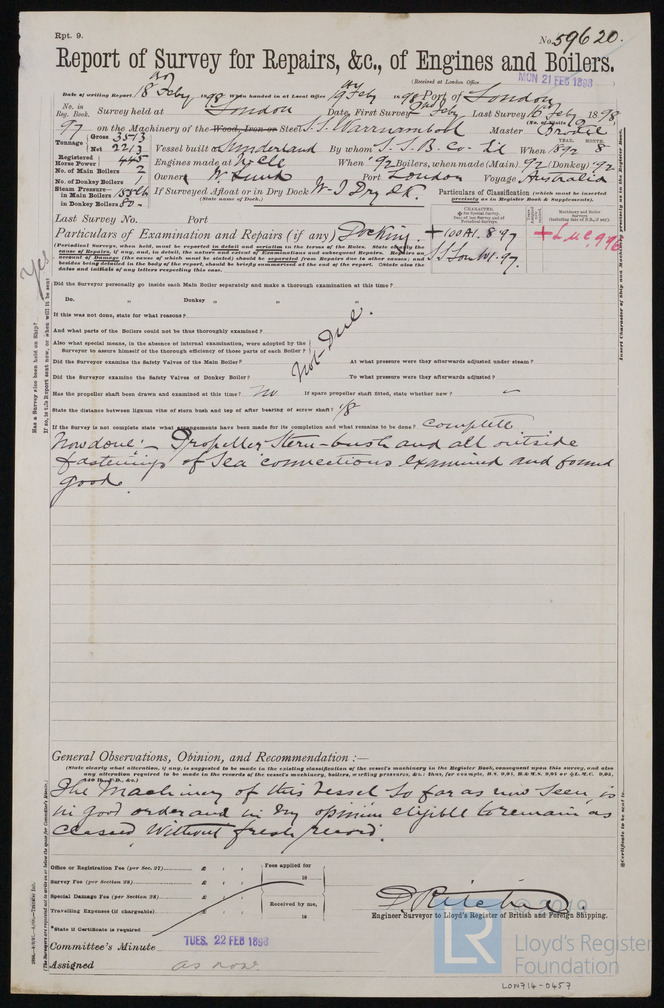 Rpt. 9.
No. 59620.
Report of Survey for Repairs, &c., of Engines and Boilers.
(Received at London Office MON 21 FEB 1898
Date of writing Report 18 Feby 1898 When handed in at Local Office 19 Feby 1898 Port of London
No. in Reg. Book. Survey held at London Date, First Survey 2nd Feby Last Survey 10 Feby 1898
(No. of Visits
97 on the Machinery of the Wood, Iron or Steel S.S. Warrnambool Master Brodie
Tonnage Gross 3513 Net 2213 Vessel built at Sunderland By whom S. S. B. Co. Ld When 1892 YEAR. MONTH. 8
Registered Horse Power 445 Engines made at When '92 Boilers, when made (Main) 92 (Donkey) 92
No. of Main Boilers 2
No. of Donkey Boilers 1 Owners W. Lund Port London Voyage Australia
Steam Pressure in Main Boilers in Donkey Boilers 80 If Surveyed Afloat or in Dry Dock W. I. Dry Dk.
(State name of Dock.)
Particulars of Classification (which must be inserted precisely as in Register Book & Supplements).
Last Survey No. Port
Particulars of Examination and Repairs (if any) Docking
+100A1. 8 97
S.S. Lon No1. 97.
+L.M.C. 9,96
(Periodical Surveys, when held, must be reported in detail and seriatim in the terms of the Rules. State clearly the cause of Repairs, if any, and, in detail, the nature and extent of Examinations and subsequent Repairs. Repairs on account of Damage (the cause of which must be stated) should be separated from Repairs due to other causes; and besides being detailed in the body of the report, should be briefly summarised at the end of report. State also the dates and initials of any letters respecting this case.
Did the Surveyor personally go inside each Main Boiler separately and make a thorough examination at this time?
Do. Donkey " " "
If this was not done, state for what reasons?
And what parts of the Boilers could not be thus thoroughly examined?
Also what special means, in the absence of internal examination, were adopted by the Surveyor to assure himself of the thorough efficiency of those parts of each Boiler?
Not Due.
Did the Surveyor examine the Safety Valves of the Main Boiler? At what pressure were they afterwards adjusted under steam?
Did the Surveyor examine the Safety Valves of Donkey Boiler? To what pressure were they afterwards adjusted?
Has the propeller shaft been drawn and examined at this time? No If spare propeller shaft fitted, state whether new? —
State the distance between lignum vitæ of stern bush and top of after bearing of screw shaft? 1/8
If the Survey is not complete state what arrangements have been made for its completion and what remains to be done? Complete
Now done:— Propeller Stern-bush and all outside
fastenings of Sea connections examined and found
good.
General Observations, Opinion, and Recommendation:—
(State clearly what alteration, if any, is suggested to be made in the existing classification of the vessel's machinery in the Register Book, consequent upon this survey, and also any alteration required to be made in the records of the vessel's machinery, boilers, working pressures, &c.: thus, for example, B.S. 9,95, B.&M.S. 9,95 or +L.M.C. 9,95,
The Machinery of this vessel so far as now seen, is
in good order and in my opinion eligible to remain as
classed, without fresh record.
Office or Registration Fee (per Sec. 27) £ : : Fees applied for
Survey Fee (per Section 28) £ : : 18
Special Damage Fee (per Section 28) £ : : Received by me,
Travelling Expenses (if chargeable) £ : : 18
*State if Certificate is required
D. Ritchie
Engineer Surveyor to Lloyd's Register of British and Foreign Shipping.
Committee's Minute TUES. 22 FEB 1898
Assigned as now.
Has a Survey also been held on Ship? Yes
If so, is the Report sent now, or when will it be sent
(The Surveyors are requested not to write on or below the space for Committee's Minute.)
Insert Character of Ship and Machinery precisely as in the Register Book.
Certificate to be sent to
LR Lloyd's Register Foundation
LON714-0457